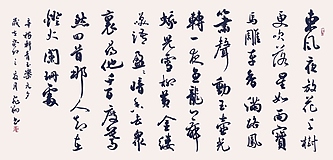 東風夜放花千樹
更吹落星如雨寶
馬雕車香滿路鳳
簫聲動玉壺光
轉一夜魚龍舞
蛾兒雪柳黃金縷
笑語盈盈暗香去眾
裏尋他千百度驀
然回首那人卻在
燈火闌珊處
辛棄疾青玉案元夕